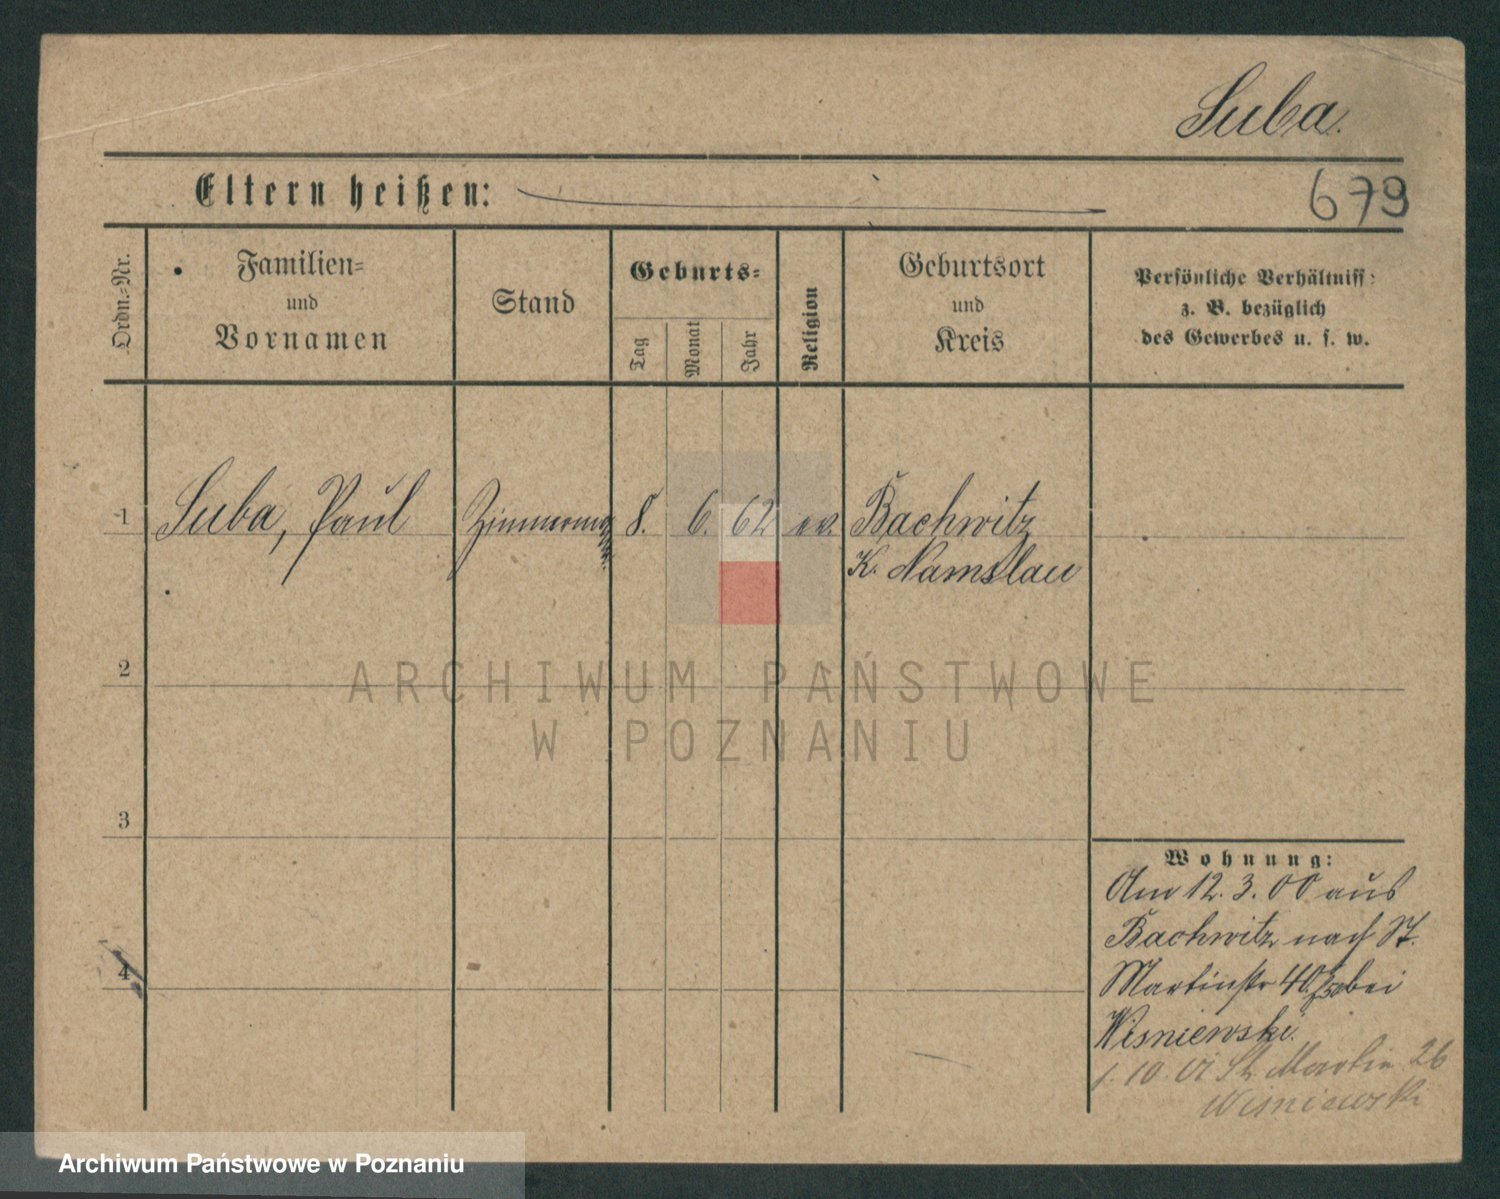 Suba.
Eltern heißen:
679
Ordn.-Nr.
Familien-
und
Vornamen
Stand
Geburts-
Tag
Monat
Jahr
Religion
Geburtsort
und
Kreis
Persönliche Verhältniss:
z. B. bezüglich
des Gewerbes u. s. w.
1 Suba, Paul 8. 6. 62 ev. Bachwitz
K. Namslau
2
ARCHIWUM PAŃSTWOWE
W POZNANIU
3
Wohnung:
Am 12. 3. 00 aus
Bachwitz nach St.
4
Martinstr 40 bei
Wisniewski.
1. 10. 01 St. Martin 26
Wisniewski
Archiwum Państwowe w Poznaniu